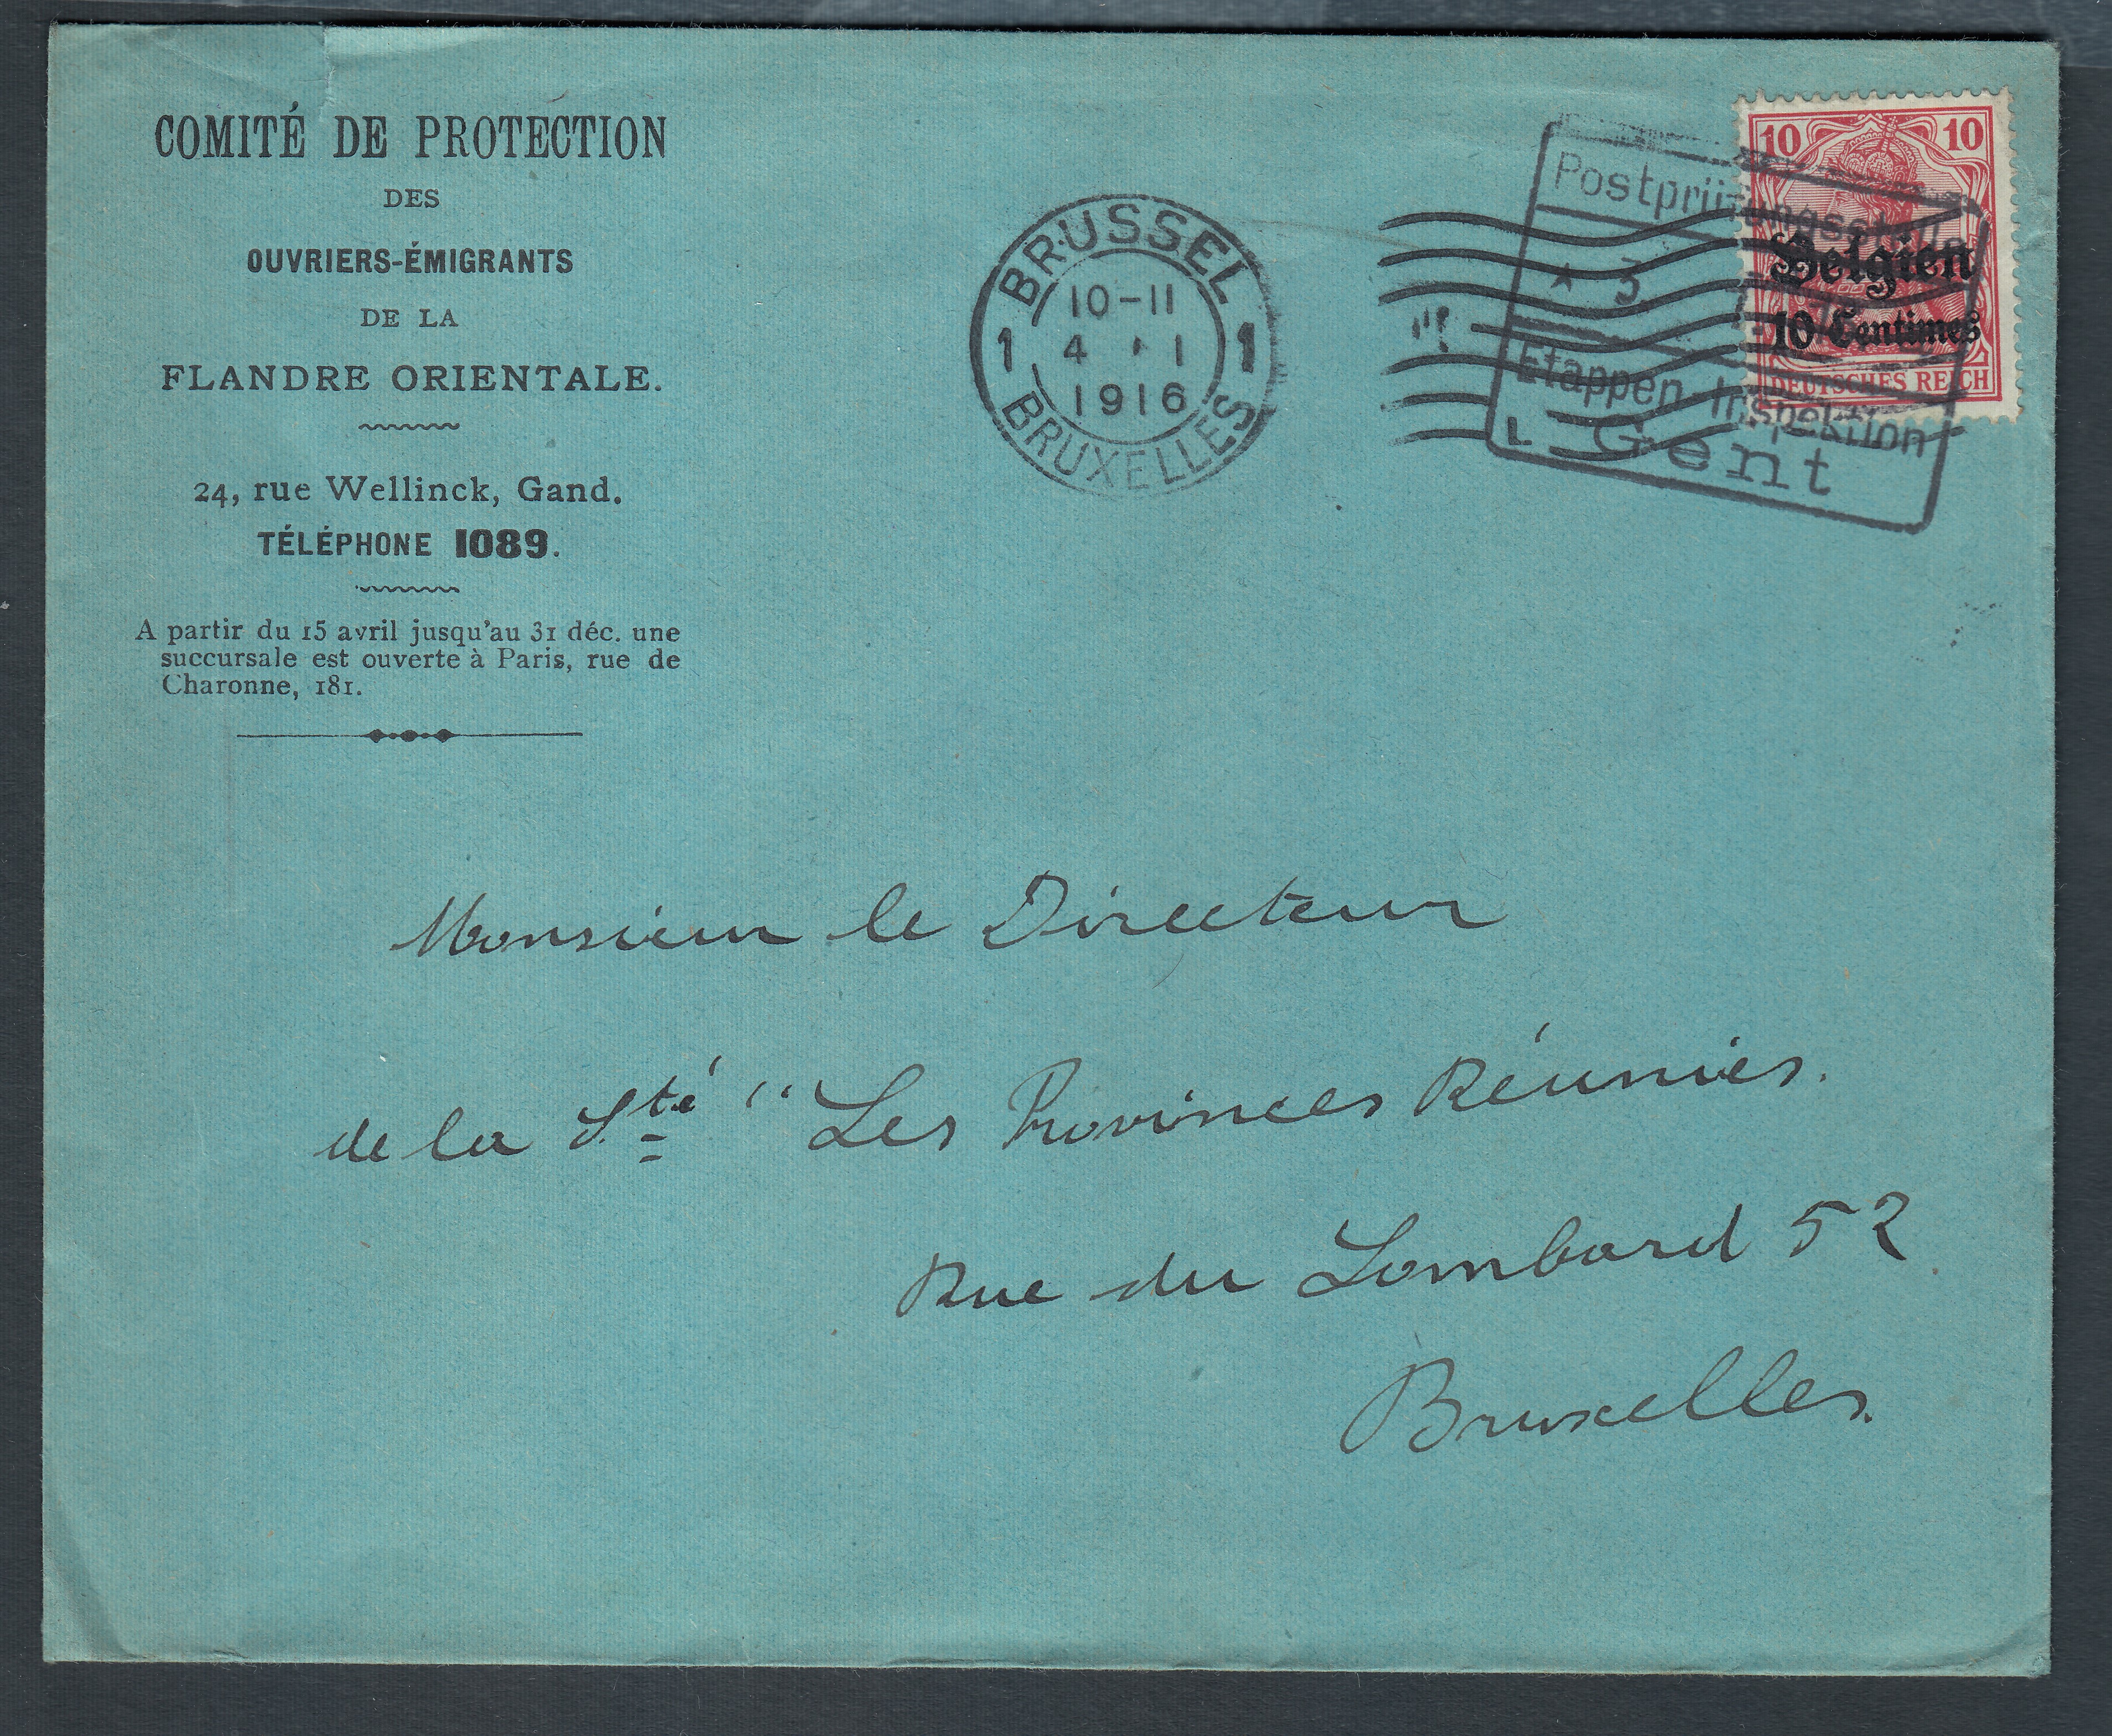 COMITÉ DE PROTECTION
DES
OUVRIERS-ÉMIGRANTS
DE LA
FLANDRE ORIENTALE.
24, rue Wellinck, Gand.
TÉLÉPHONE 1089.
A partir du 15 avril jusqu'au 31 déc. une
succursale est ouverte à Paris, rue de
Charonne, 181.
BRUSSEL
10-11
1 4 · 1 1
1916
BRUXELLES
Postprüfungsstelle
* 3
Etappen-Inspektion
L Gent
10 10
Belgien
10 Centimes
DEUTSCHES REICH
Monsieur le Directeur
de la Sté "Les Provinces Réunies.
Rue du Lombard 52
Bruxelles.